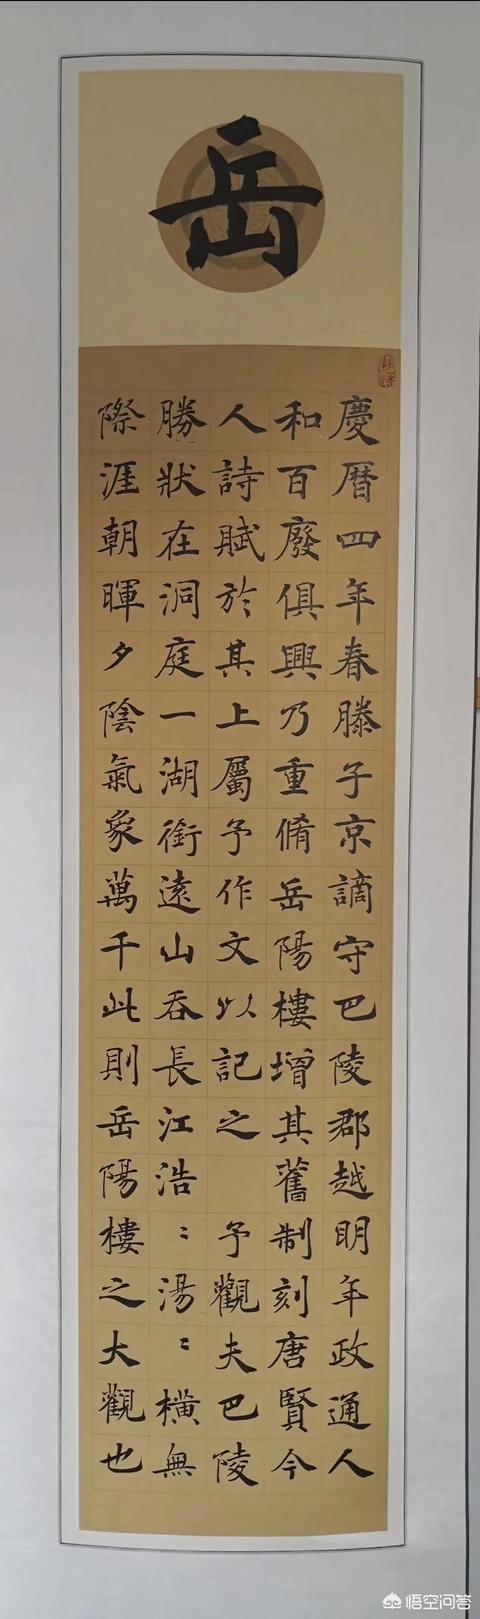 岳
慶曆四年春滕子京謫守巴陵郡越明年政通人
和百廢俱興乃重脩岳陽樓增其舊制刻唐賢今
人詩賦於其上屬予作文以記之 予觀夫巴陵
勝狀在洞庭一湖銜遠山吞長江浩〻湯〻橫無
際涯朝暉夕陰氣象萬千此則岳陽樓之大觀也
悟空问答